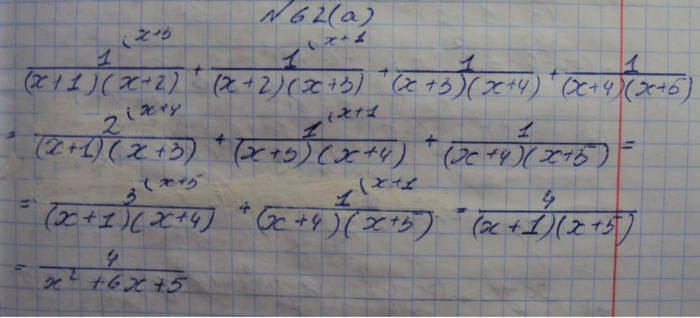 №62(а)
\frac{1^{(x+3}}{(x+1)(x+2)} + \frac{1^{(x+1}}{(x+2)(x+3)} + \frac{1}{(x+3)(x+4)} + \frac{1}{(x+4)(x+5)}
= \frac{2^{(x+4}}{(x+1)(x+3)} + \frac{1^{(x+1}}{(x+3)(x+4)} + \frac{1}{(x+4)(x+5)} =
= \frac{3^{(x+5}}{(x+1)(x+4)} + \frac{1^{(x+1}}{(x+4)(x+5)} = \frac{4}{(x+1)(x+5)}
= \frac{4}{x^2+6x+5}